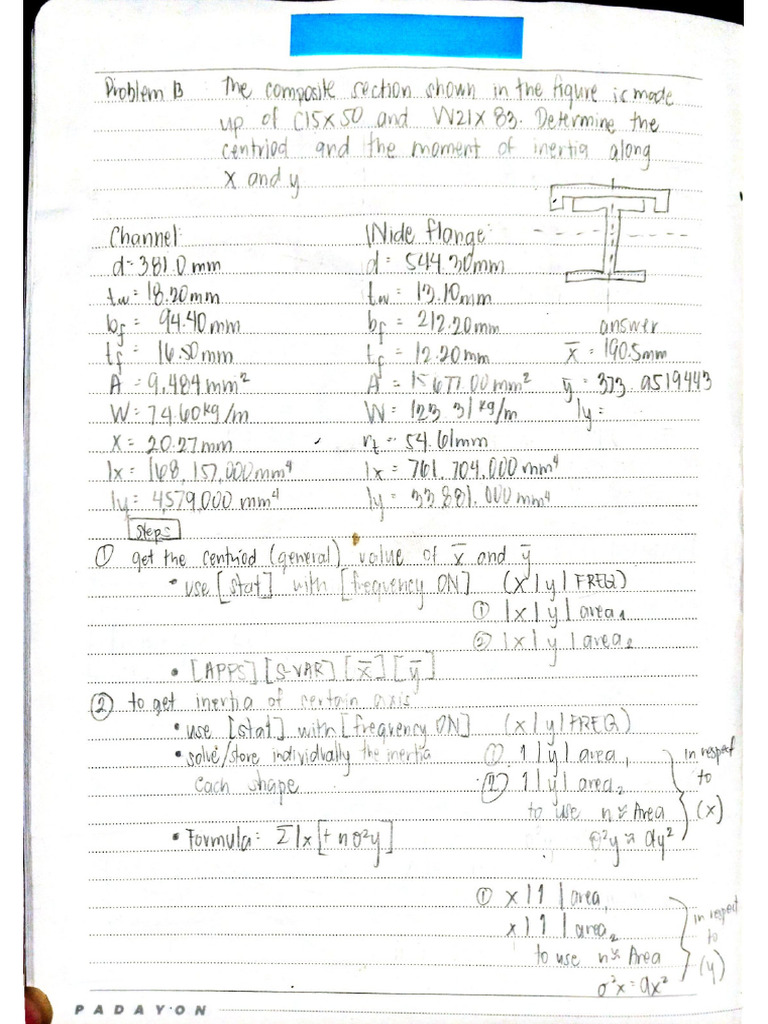 Problem 13 The composite section shown in the figure is made
up of C15x50 and W21x83. Determine the
centriod and the moment of inertia along
x and y
Channel:
d = 381.0 mm
tw = 18.20mm
bf = 94.40mm
tf = 16.50mm
A = 9,484 mm²
W = 74.60 kg/m
X = 20.27mm
Ix = 168,157,000mm⁴
Iy = 4,579,000 mm⁴
Wide flange:
d = 544.30mm
tw = 13.10mm
bf = 212.20mm
tf = 12.20mm
A = 15677.00mm²
W = 123.31 kg/m
rt = 54.61mm
Ix = 761,704,000 mm⁴
Iy = 33,881,000 mm⁴
answer
x̄ = 190.5mm
ȳ = 373.9519443
Iy =
Steps:
① get the centriod (general) value of x̄ and ȳ
• use [stat] with [frequency ON] (x | y | FREQ)
① | x | y | area₁
② | x | y | area₂
• [APPS] [S-VAR] [x̄] [ȳ]
② to get inertia of certain axis
• use [stat] with [frequency ON] (x | y | FREQ)
• solve/store individually the inertia
each shape
① 1 | y | area₁
② 1 | y | area₂
to use n ≈ Area
σ²y ≈ dy²
in respect
to
(x)
• Formula: Σ Ix [+ n σ²y]
① x | 1 | area₁
x | 1 | area₂
to use n ≈ Area
σ²x = dx²
in respect
to
(y)
PADAYON